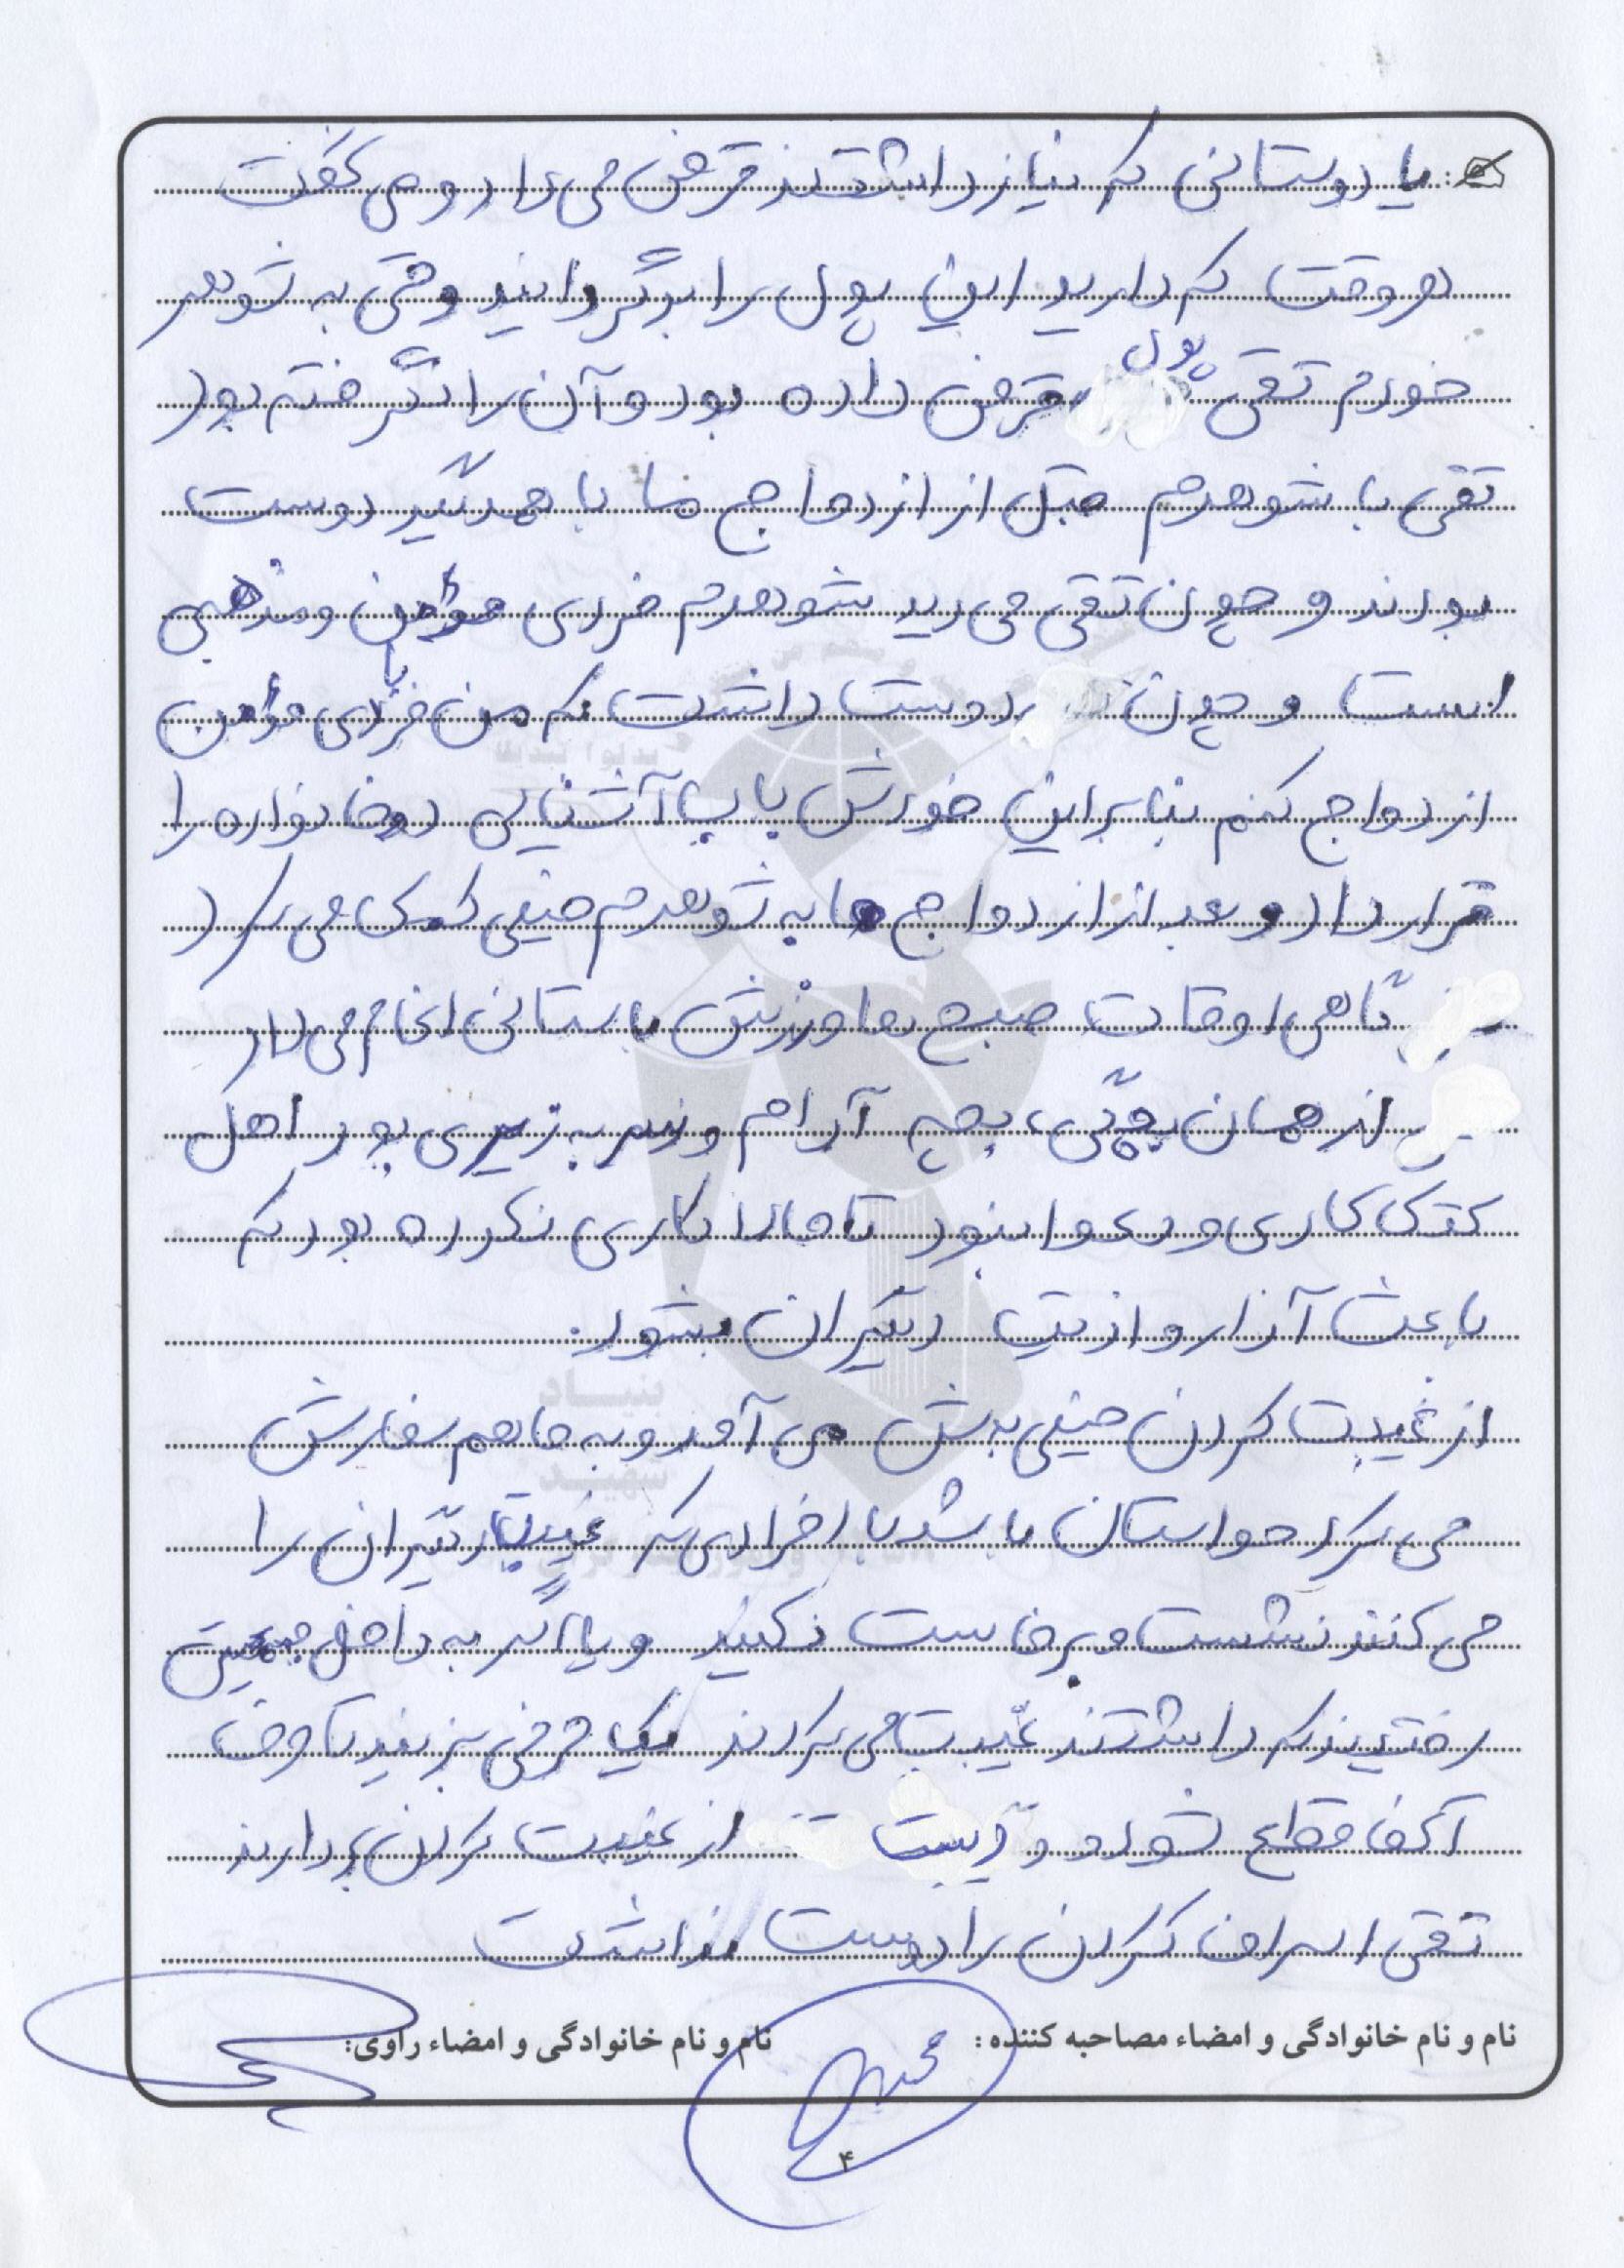 یا دوستانی که نیاز داشتند قرض می داد و می گفت
هر وقت که دارید این پول را برگردانید وقتی به شوهر
خودم تقی پول قرض داده بود و آن را نگرفته بود
تقی با شوهرم قبل از ازدواج ما با همدیگر دوست
بودند و چون تقی می دید شوهرم فردی مؤمن و مذهبی
است و چون دوست داشت که من با فردی مؤمن
ازدواج کنم بنابراین خودش باب آشنایی دو خانواده را
قرار داد و بعد از ازدواج ما به شوهرم خیلی کمک می کرد
گاهی اوقات صبح ها ورزش باستانی انجام می داد
از همان بچگی، بچه آرام و سر به زیری بود اهل
کتک کاری و دعوا نبود تا حالا کاری نکرده بود که
باعث آزار و اذیت دیگران بشود.
از غیبت کردن خیلی بدش می آمد و به ما هم سفارش
می کرد حواستان باشد با افرادی که غیبت دیگران را
می کنند نشست و برخاست نکنید و یا اگر به داخل جمعیتی
رفتیند که داشتند غیبت می کردند یک حرفی بزنید تا حرف
آنها قطع شود و دست از غیبت کردن بردارند
تقی اسراف کردن را دوست نداشت
نام و نام خانوادگی و امضاء مصاحبه کننده: نام و نام خانوادگی و امضاء راوی:
۴